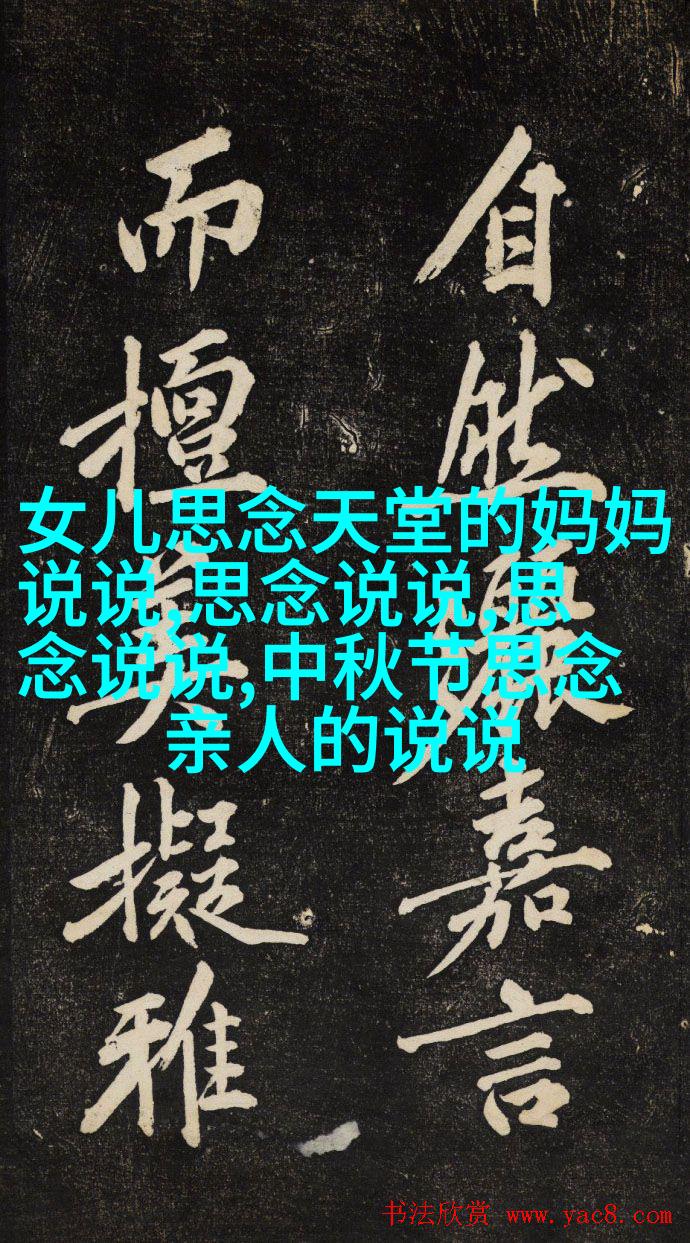 自然嘉言
而擅擬雅
女儿思念天堂的妈妈
说说,思念说说,思
念说说,中秋节思念
亲人的说说
书法欣赏 www.yac8.com